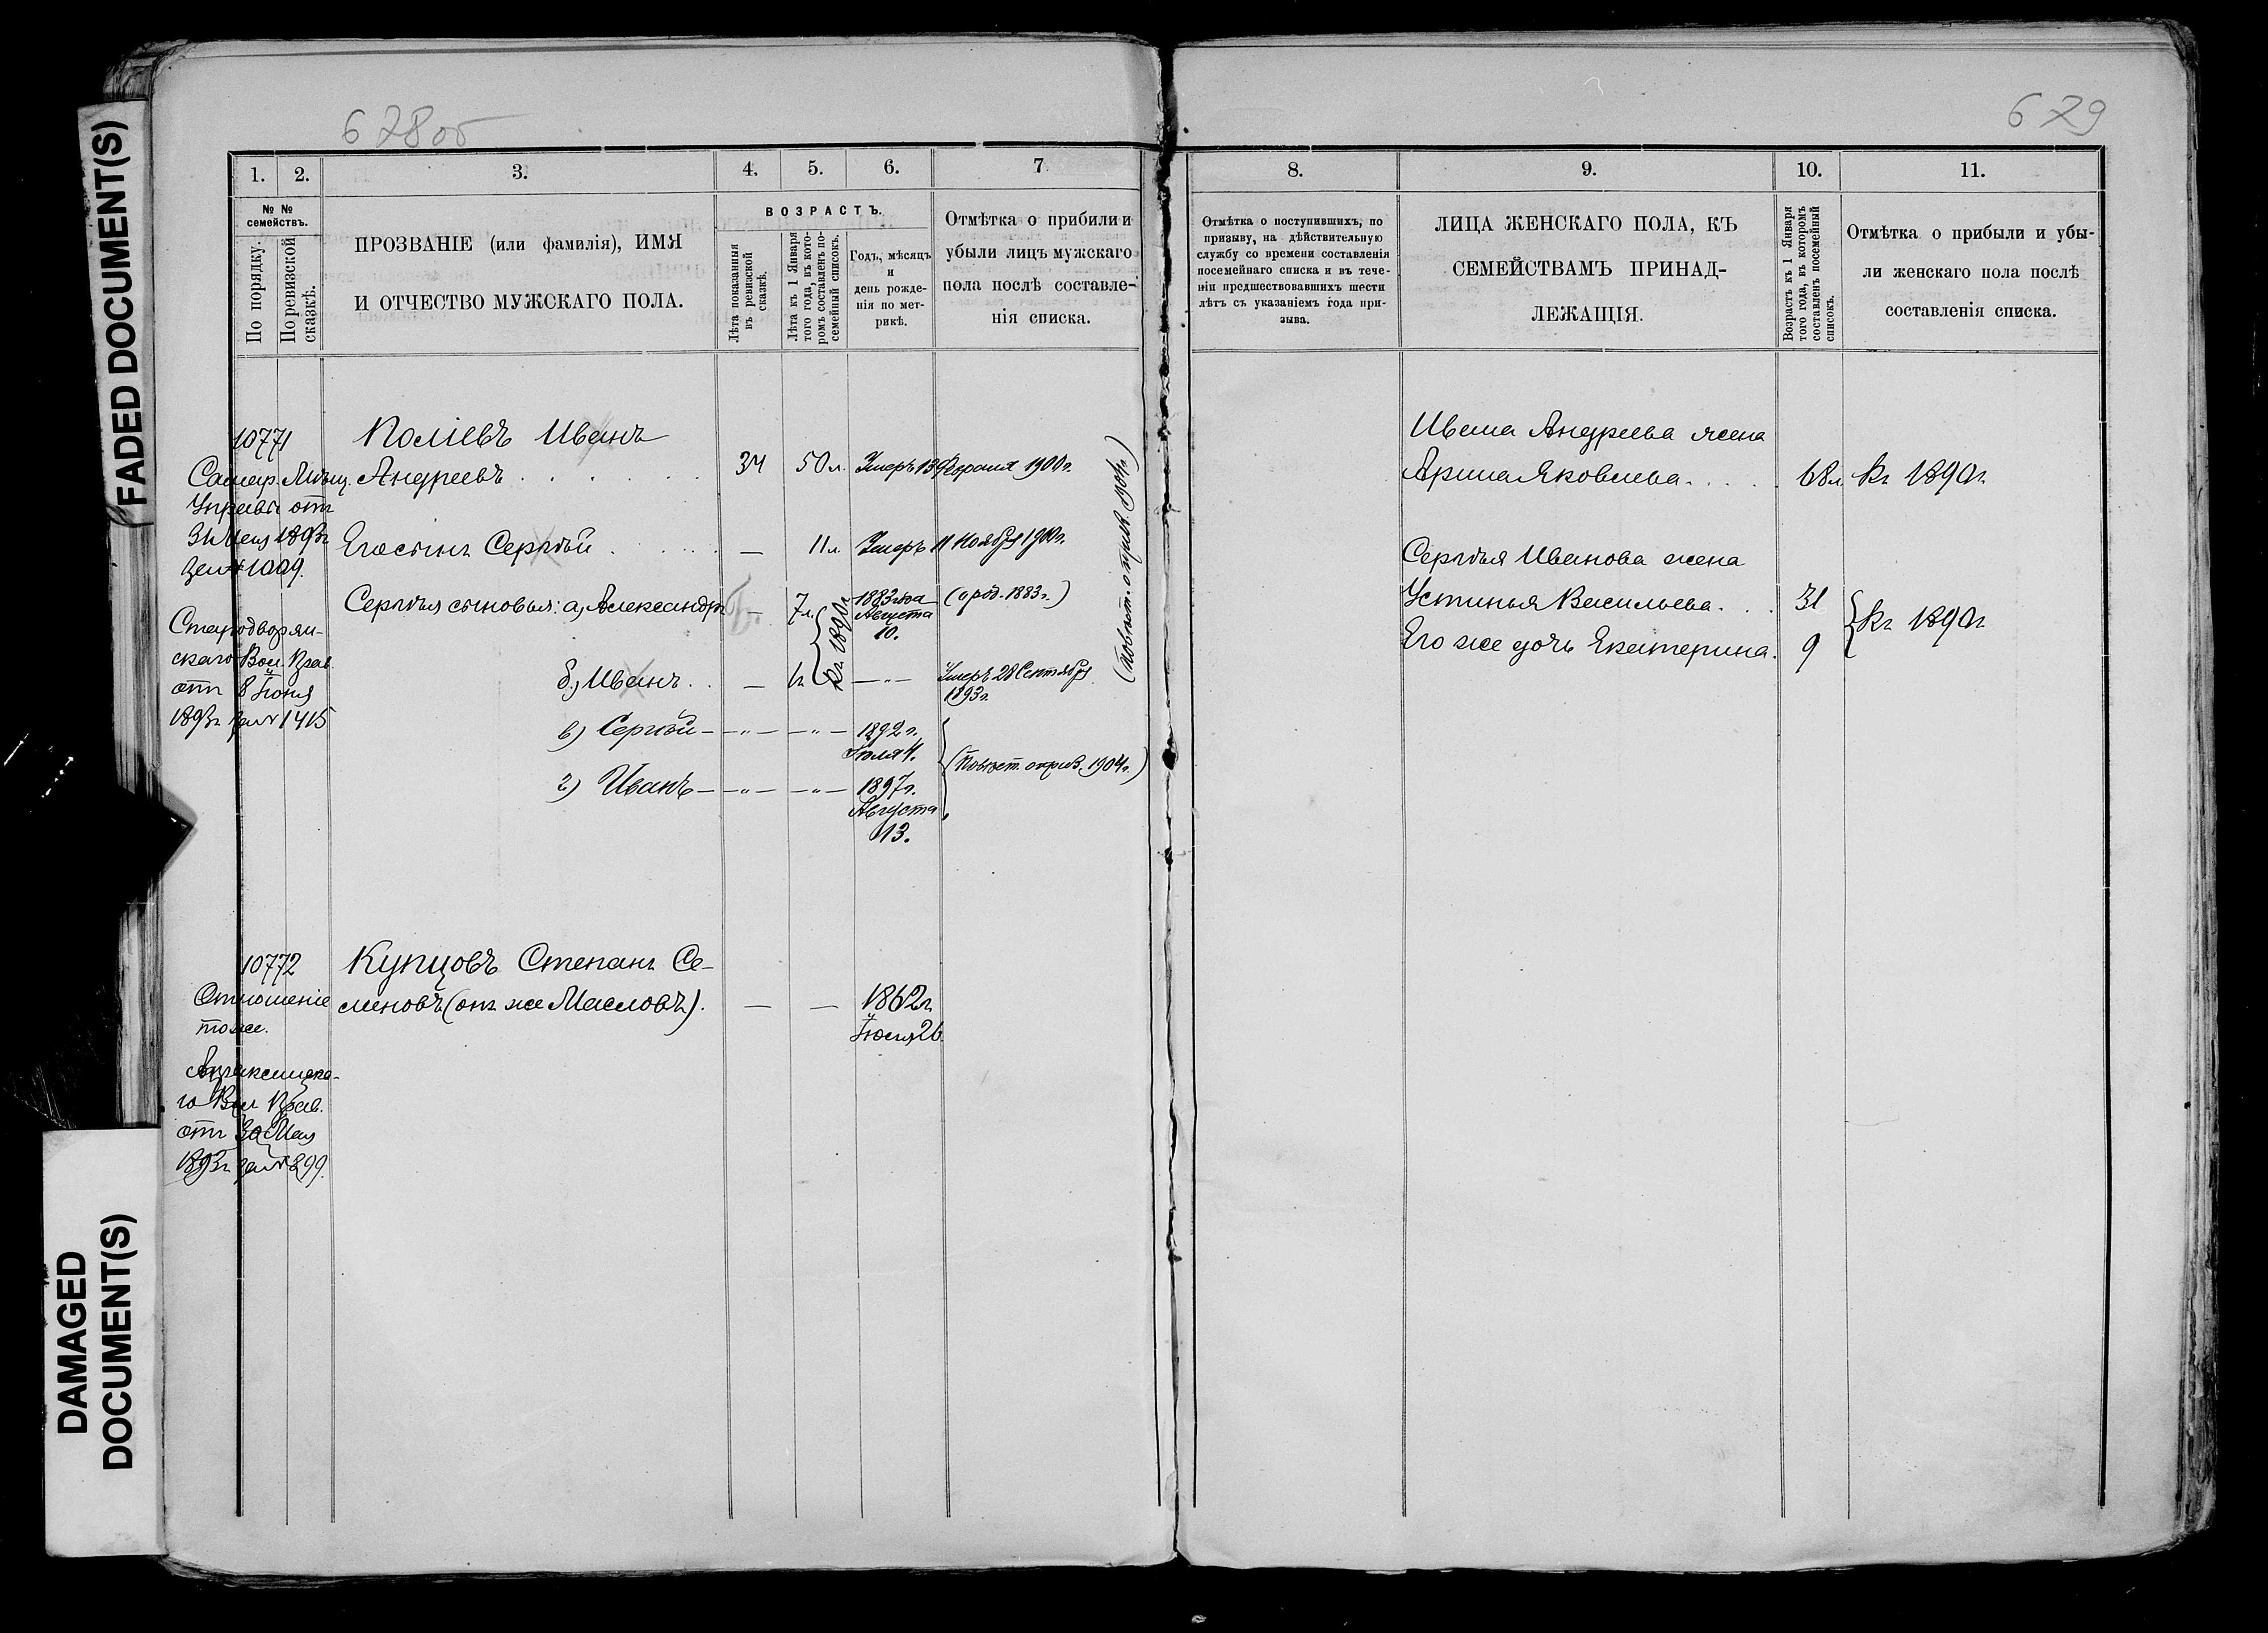 FADED DOCUMENT(S)
DAMAGED
DOCUMENT(S)
678об
1. 2. 3. 4. 5. 6. 7
№ №
семействъ.
По порядку.
По ревизской
сказкѣ.
ПРОЗВАНІЕ (или фамилія), ИМЯ
И ОТЧЕСТВО МУЖСКАГО ПОЛА.
ВОЗРАСТЪ.
Лѣта показанныя
въ ревизской
сказкѣ.
Лѣта къ 1 Января
того года, въ кото-
ромъ составленъ по-
семейный списокъ.
Годъ, мѣсяцъ
и
день рожде-
нія по мет-
рикѣ.
Отмѣтка о прибыли и
убыли лицъ мужскаго
пола послѣ составле-
нія списка.
10771
Самар. Мѣщ.
Управы отъ
31 Мая 1893г.
за № 1009.
Стародворян-
скаго Вол. Прав.
отъ 8 Іюня
189 г. за № 1415
Иванъ
Андреевъ 34 50 л. Умеръ 13 Февраля 1900г.
Его сынъ Сергѣй — 11 л. Умеръ 11 Ноября г.
Сергѣя сыновья: а) Александръ — 7 л. 1883 года Августа 10. (о род. 1883 г.)
б) Иванъ — — " — Умеръ 28 Сентября
1893 г.
къ 1890 г.
в) Сергѣй — " — — " — 1892 г.
Іюля 4.
г) Иванъ — " — — " — 1897 г.
Августа
13.
(Повѣст. о прив. 1904 г.)
(Повѣст. о прив. 1904 г.)
10772
Отношеніе
тоже.
го Вол. Прав.
отъ 30 Мая
1893г. за № 899.
Купцовъ Степанъ Се-
меновъ (онъ же Масловъ). — — 1862 г.
Іюля 26.
679
8. 9. 10. 11.
Отмѣтка о поступившихъ, по
призыву, на дѣйствительную
службу со времени составленія
посемейнаго списка и въ тече-
ніи предшествовавшихъ шести
лѣтъ съ указаніемъ года при-
зыва.
ЛИЦА ЖЕНСКАГО ПОЛА, КЪ
СЕМЕЙСТВАМЪ ПРИНАД-
ЛЕЖАЩІЯ.
Возрастъ къ 1 Января
того года, въ которомъ
составленъ посемейный
списокъ.
Отмѣтка о прибыли и убы-
ли женскаго пола послѣ
составленія списка.
Ивана Андреева жена
Арина Яковлева 68 л. къ 1890 г.
Сергѣя Иванова жена
Устинья Васильева 31
Его же дочь Екатерина. 9
къ 1890 г.